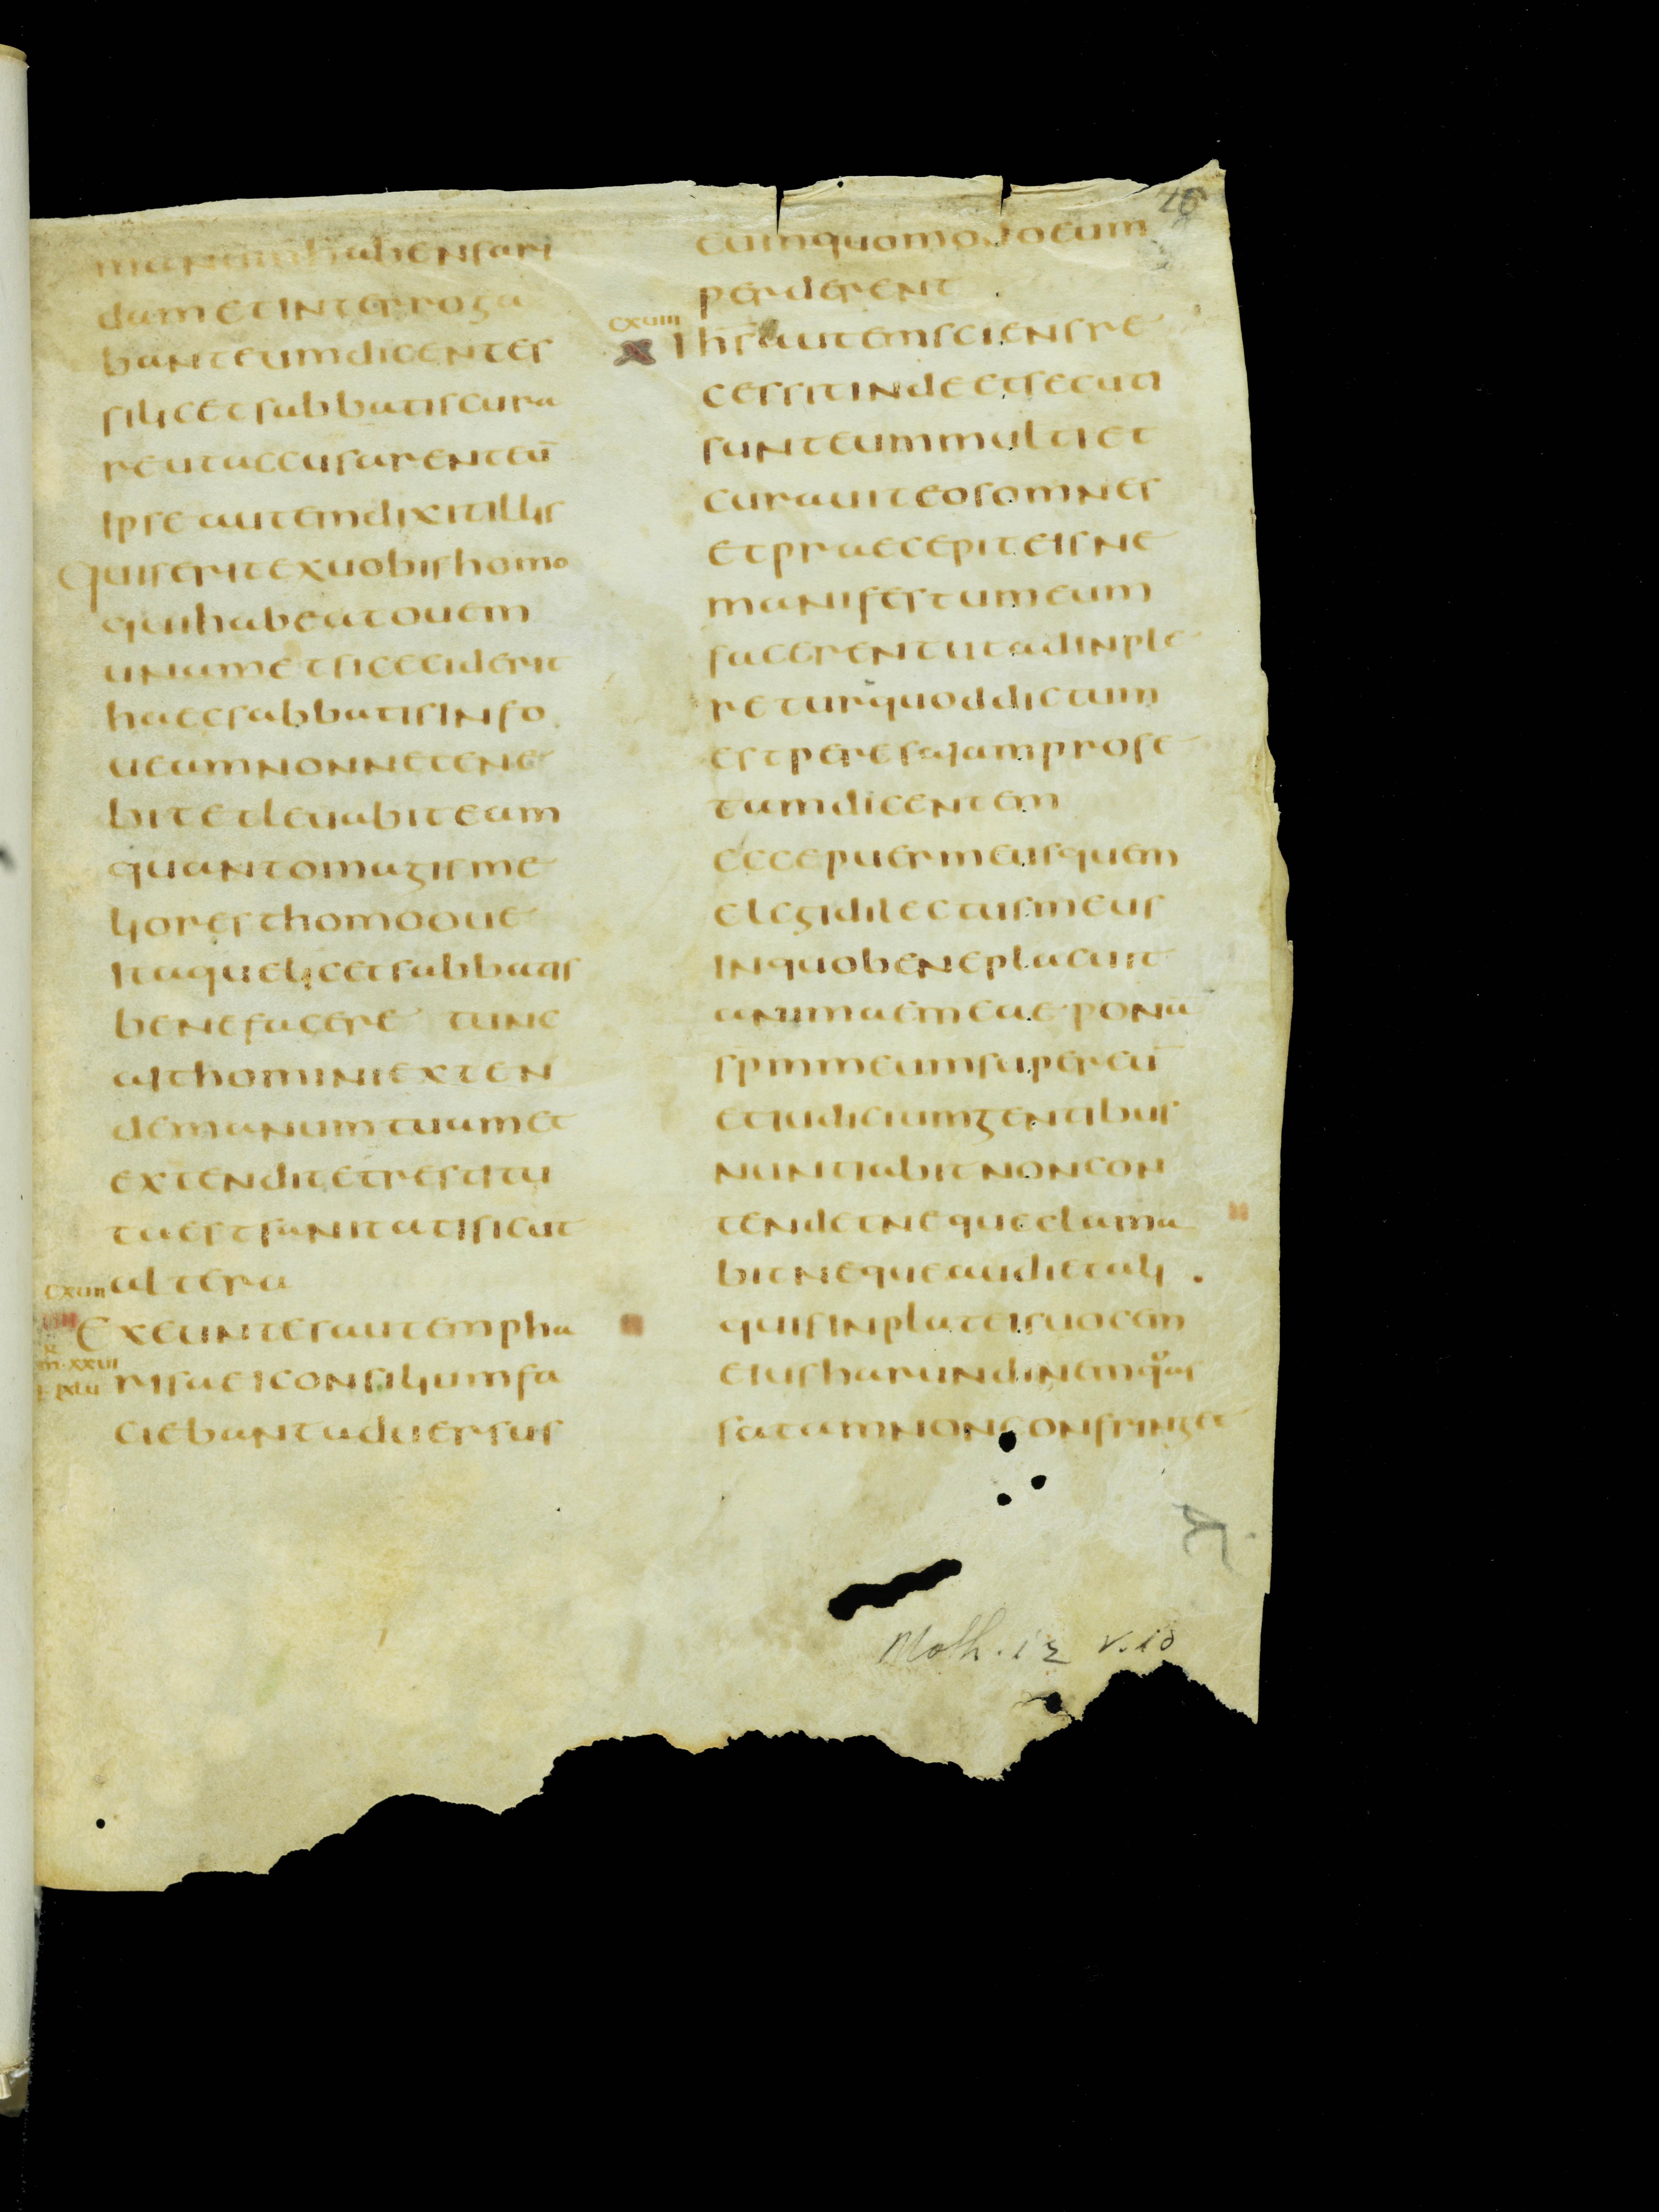 manum habens ari
dam et interroga
bant eum dicentes
si licet sabbatis cura
re ut accusarent eū
ipse autem dixit illis
quis erit ex uobis homo
qui habeat ouem
unam et si ceciderit
haec sabbatis in fo
ueam nonne tene
bit et leuabit eam
quanto magis me
lior est homo oue
itaque licet sabbatis
bene facere tunc
ait homini exten
de manum tuam et
extendit et restitu
ta est sanitati sicut
altera
cxuii
Exeuntes autem pha
m·xxiii
risaei consilium fa
ciebant aduersus
eum quomodo eum
perderent
cxuiii
ihs autem sciens re
cessit inde et secuti
sunt eum multi et
curauit eos omnes
et praecepit eis ne
manifestum eum
facerent ut adinple
retur quod dictum
est per esaiam profe
tam dicentem
ecce puer meus quem
elegi dilectus meus
in quo bene placuit
animae meae ponā
spm meum super eū
et iudicium gentibus
nuntiabit non con
tendet neque clama
bit neque audiet ali
quis in plateis uocem
eius harundinem quas
satam non confringet
Math. 12 v. 10